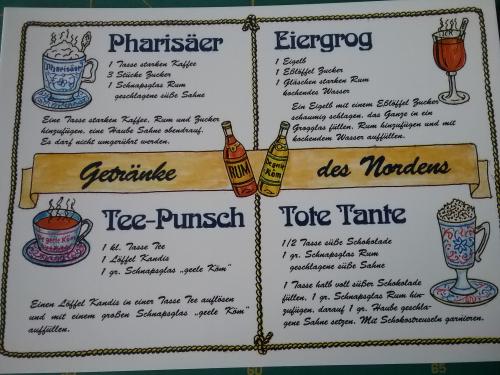 Pharisäer
1 Tasse starken Kaffee
3 Stücke Zucker
1 Schnapsglas Rum
geschlagene süße Sahne
Eine Tasse starken Kaffee, Rum und Zucker
hinzufügen, eine Haube Sahne obendrauf.
Es darf nicht umgerührt werden.
Pharisäer
Eiergrog
1 Eigelb
1 Eßlöffel Zucker
1 Gläschen starken Rum
kochendes Wasser
Ein Eigelb mit einem Eßlöffel Zucker
schaumig schlagen, das Ganze in ein
Grogglas füllen, Rum hinzufügen und mit
kochendem Wasser auffüllen.
Getränke
RUM
Köm
des Nordens
Tee-Punsch
1 kl. Tasse Tee
1 Löffel Kandis
1 gr. Schnapsglas „geele Köm"
Einen Löffel Kandis in einer Tasse Tee auflösen
und mit einem großen Schnapsglas „geele Köm"
auffüllen.
geele Köm
Tote Tante
1/2 Tasse süße Schokolade
1 gr. Schnapsglas Rum
geschlagene süße Sahne
1 Tasse halb voll süßer Schokolade
füllen, 1 gr. Schnapsglas Rum hin-
zufügen, darauf 1 gr. Haube geschla-
gene Sahne setzen. Mit Schokostreuseln garnieren.
60
65